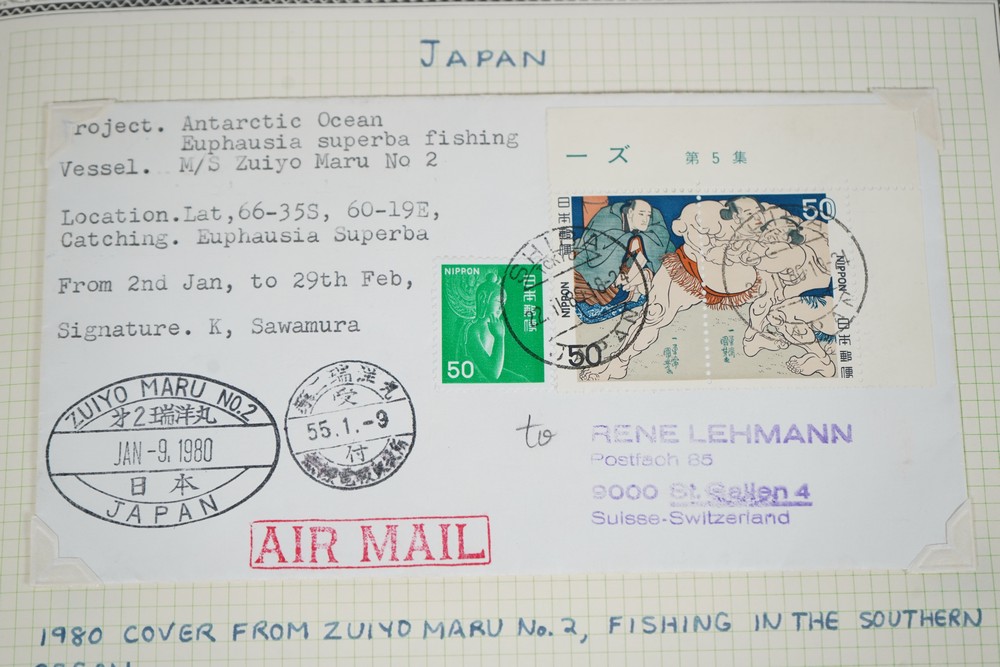 JAPAN
Project. Antarctic Ocean
Euphausia superba fishing
Vessel. M/S Zuiyo Maru No 2
Location.Lat,66-35S, 60-19E,
Catching. Euphausia Superba
From 2nd Jan, to 29th Feb,
Signature. K, Sawamura
ーズ 第5集
NIPPON
日本郵便
50
日本郵便
50
NIPPON
50
NIPPON
日本郵便
ZUIYO MARU NO.2
第2瑞洋丸
JAN -9. 1980
日本
JAPAN
第二瑞洋丸
受
55.1.-9
付
AIR MAIL
to
RENE LEHMANN
Postfach 85
9000 St. Gallen 4
Suisse-Switzerland
1980 COVER FROM ZUIYO MARU No. 2, FISHING IN THE SOUTHERN
OCEAN